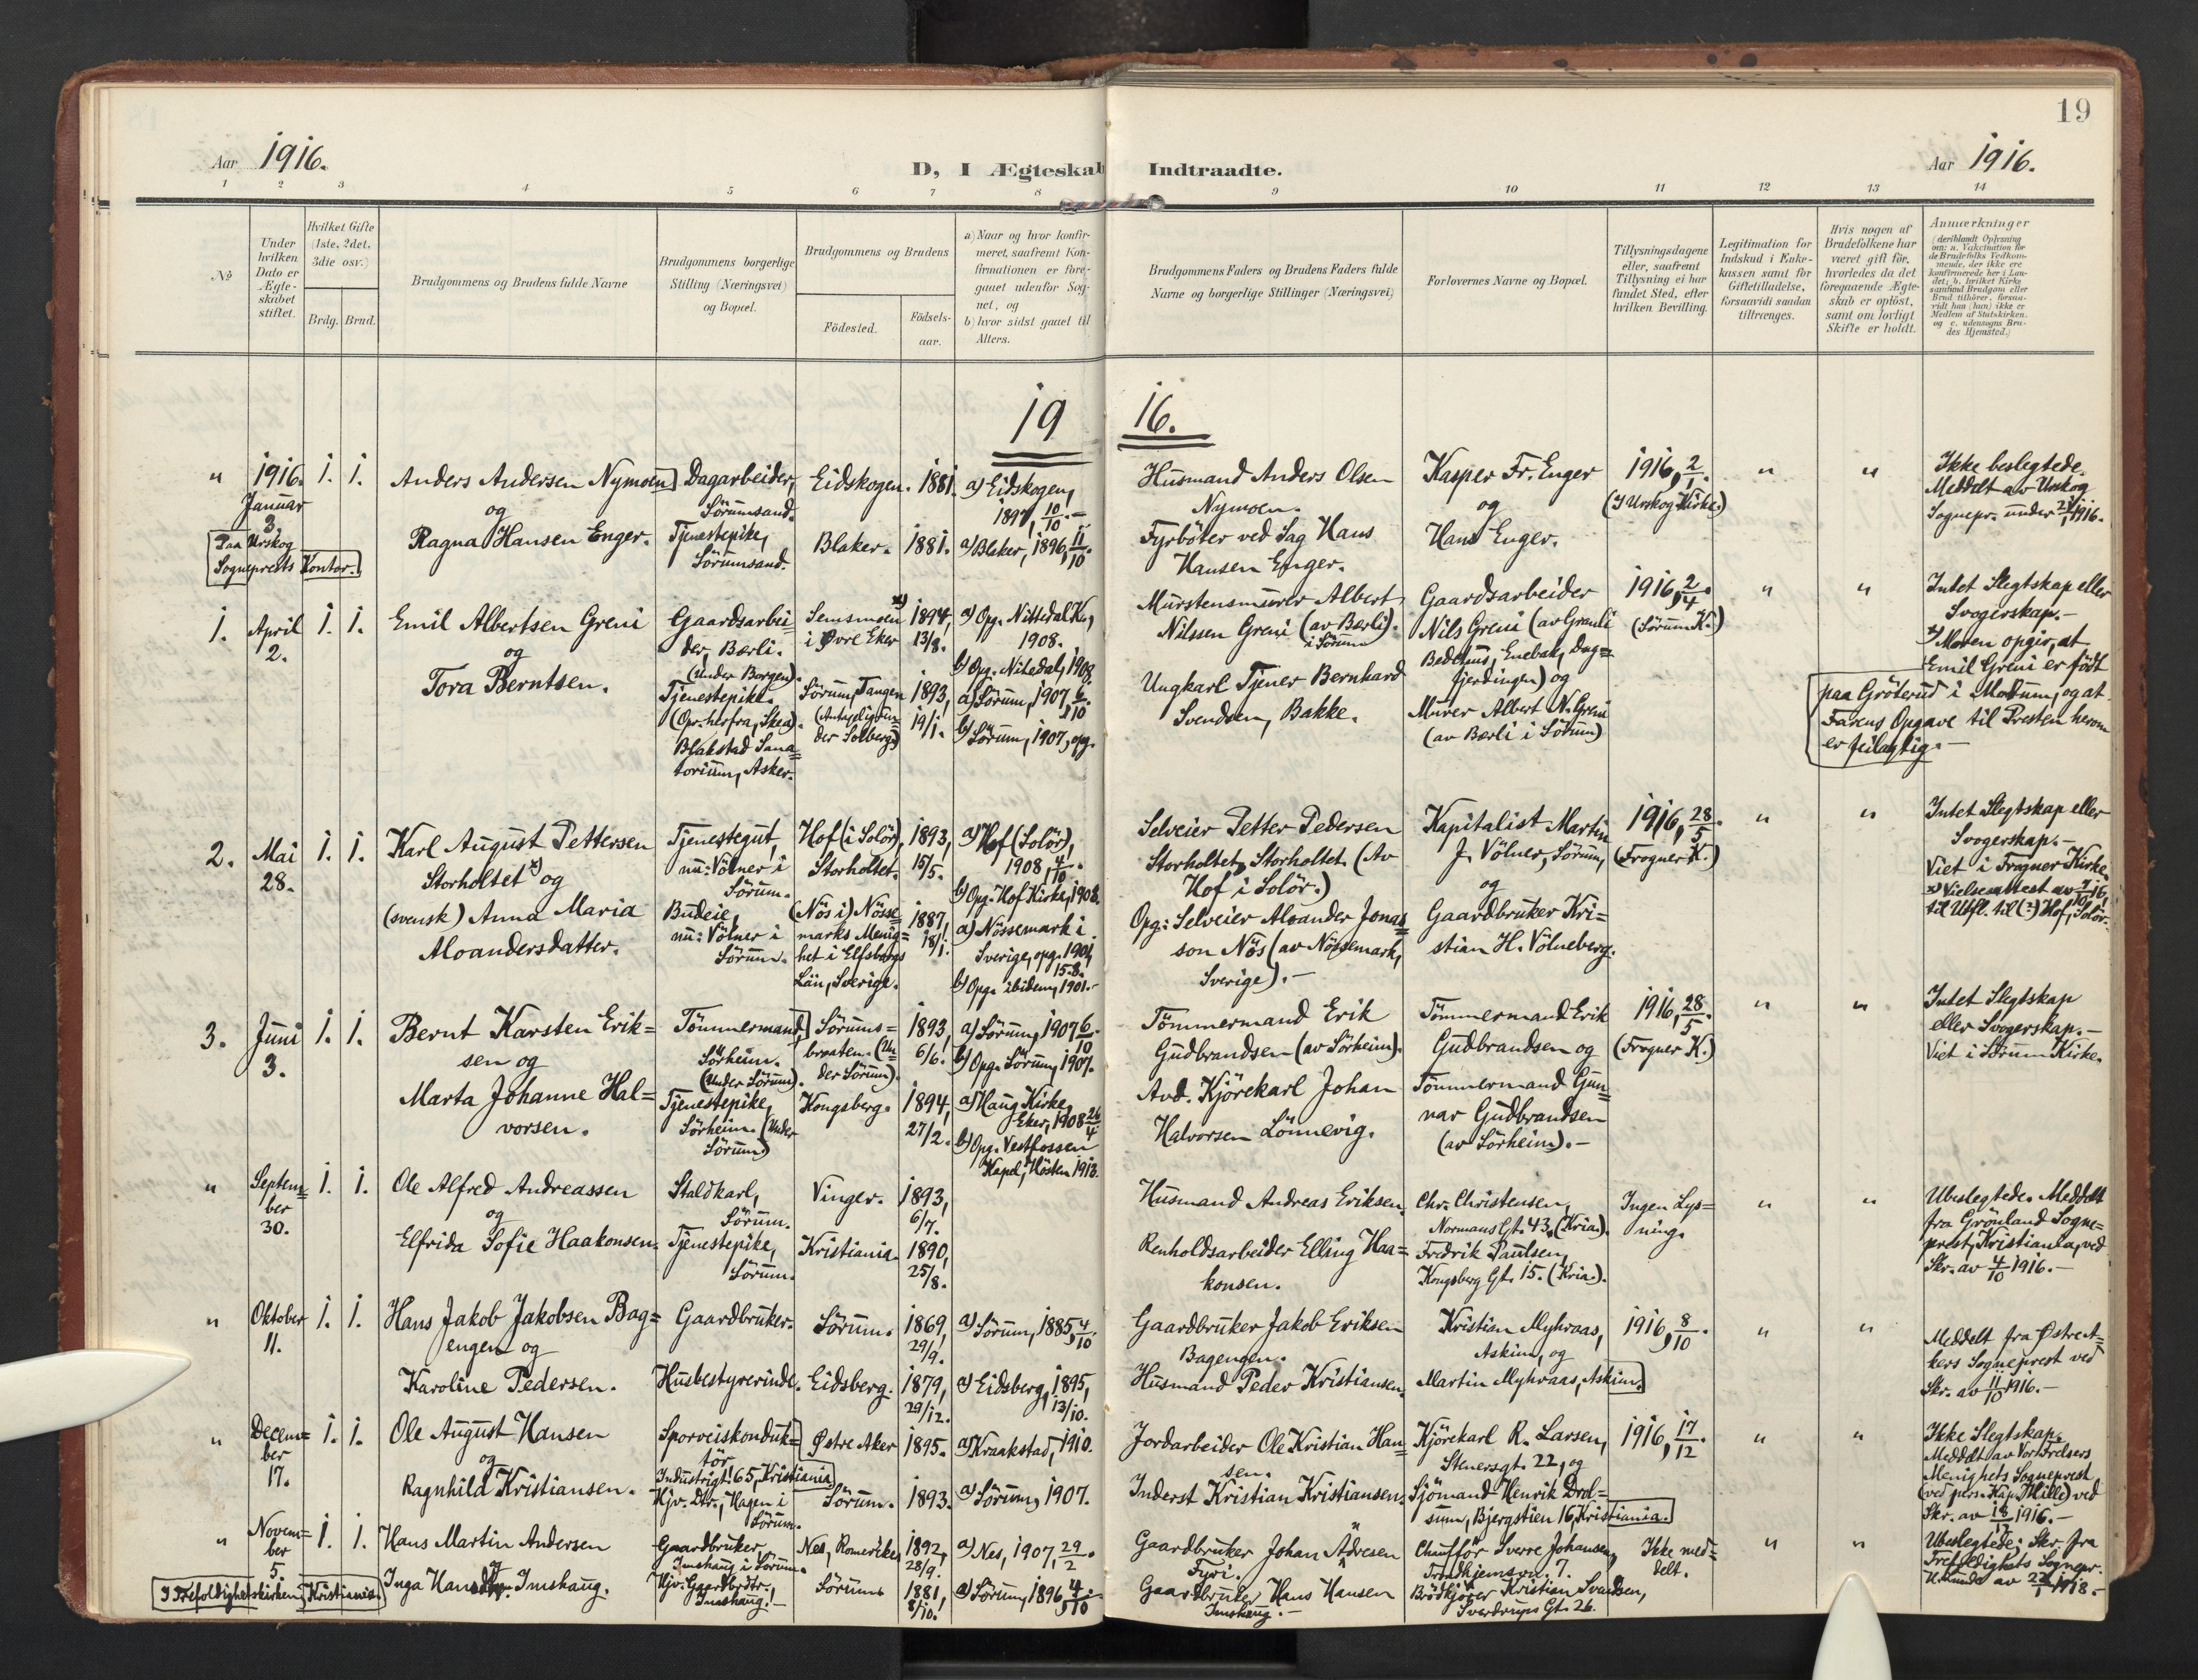 19
Aar 1916.
D, I Ægteskab Indtraadte.
Aar 1916.
1 2 3 4 5 6 7 8 9 10 11 12 13 14
№
Under hvilken Dato er Ægteskabet stiftet.
Hvilket Gifte (1ste, 2det, 3die osv.)
Brdg. Brud.
Brudgommens og Brudens fulde Navne
Brudgommens borgerlige Stilling (Næringsvei) og Bopæl.
Brudgommens og Brudens
Födested.
Födsels-aar.
a) Naar og hvor konfirmeret, saafremt Konfirmationen er foregaaet udenfor Sognet, og
b) hvor sidst gaaet til Alters.
Brudgommens Faders og Brudens Faders fulde Navne og borgerlige Stillinger (Næringsvei)
Forlovernes Navne og Bopæl.
Tillysningsdagene eller, saafremt Tillysning ei har fundet Sted, efter hvilken Bevilling.
Legitimation for Indskud i Enkekassen samt for Giftetilladelse, forsaavidt saadan tiltrænges.
Hvis nogen af Brudefolkene har været gift för, hvorledes da det foregaaende Ægteskab er oplöst, samt om lovligt Skifte er holdt.
Anmærkninger
(deriblandt Oplysning om: a. Vakcination for de Brudefolks Vedkommende, der ikke ere konfirmerede her i Landet; b. hvilket Kirkesamfund Brudgom eller Brud tilhörer, forsaavidt han (hun) ikke er Medlem af Statskirken. og c. udensogns Brudes Hjemsted.)
1916.
" 1916. Januar 3. 1. 1.
Paa Urskog Sogneprests Kontor.
Anders Andersen Nymoen
og
Ragna Hansen Enger.
Dagarbeider, Sörumsand.
Tjenestepike, Sörumsand.
Eidskogen. 1881.
Blaker. 1881.
a) Eidskogen, 1897, 10/10.-
a) Blaker, 1896, 11/10.
Husmand Anders Olsen Nymoen.
Fyrböter ved Sag Hans Hansen Enger.
Kasper Fr. Enger
og
Hans Enger.
1916, 2/1.
(I Urskog Kirke.)
" "
Ikke beslegtede.
Meddelt av Urskog
Sognepr. under 1916.
1. April 2. 1. 1.
Emil Albertsen Greni
og
Tora Berntsen.
Gaardsarbeider, Bærli.
(Under Borgen).
Tjenestepike.
(Opr. herfra, Skea).
Blakstad Sanatorium, Asker.
Semsmoen x) i Øvre Eker
Sörum, Tangen
(Antagelig under Solberg)
1894, 13/8.
1893, 19/1.
a) Opg. Nittedal K., 1908.
b) Opg. Nitedal, 1908.
a) Sörum, 1907, 6/10
b) Sörum, 1907, opg.
Murstensmurer Albert
Nilssen Greni (av Bærli).
i Sörum
Ungkarl Tjener Bernhard
Svendsen, Bakke.
Gaardsarbeider
Nils Greni (av Granli
Bedehus, Enebak, Dag=
fjerdingen) og
Murer Albert N. Greni
(av Bærli i Sörum)
1916, 2/4.
(Sörum K.)
" "
Intet Slegtskap eller
Svogerskap.-
x) Moren opgir, at
Emil Greni er født
paa Gröterud i Modum, og at
Farens Opgave til Presten herom
er feilagtig.-
2. Mai 28. 1. 1.
Karl August Pettersen
Storholtet x) og
(svensk) Anna Maria
Aloandersdatter.
Tjenestegut,
nu: Völner i
Sörum.
Budeie,
nu: Völner i
Sörum.
Hof (i Solör),
Storholtet.
(Nös i) Nösse=
marks Menig=
het i Elfsborgs
Län, Sverige.
1893, 15/5.
1887, 18/1.
a) Hof (Solör),
1908, 4/10.
b) Opg. Hof Kirke, 1908.
a) Nössemark i
Sverige, opg. 1901,
15.8.
b) Opg. ibidem, 1901.-
Selveier Petter Pedersen
Storholtet, Storholtet (Av
Hof i Solör.)
Opg: Selveier Aloander Jonas=
son Nös (av Nössemark,
Sverige).-
Kapitalist Martin
J. Völner, Sörum,
og
Gaardbruker Kri=
stian H. Völneberg.
1916, 28/5.
(Frogner K.)
" "
Intet Slegtskap eller
Svogerskap.-
Viet i Frogner Kirke.
x) Vielsesattest av
til Utfl. til Hof, Solör.
3. Juni 3. 1. 1.
Bernt Karsten Erik=
sen og
Marta Johanne Hal=
vorsen.
Tömmermand,
Sörheim.
(Under Sörum).
Tjenestepike,
Sörheim. (Under
Sörum)
Sörums=
braaten. (Un=
der Sörum).
Kongsberg.
1893, 6/6.
1894, 27/2.
a) Sörum, 1907 6/10.
b) Opg. Sörum, 1907.
a) Haug Kirke,
Eker, 1908 26/4
b) Opg. Vestfossen
Kapel, Hösten 1913.
Tömmermand Erik
Gudbrandsen (av Sörheim).
Avd. Kjörekarl Johan
Halvorsen Lönnevig.
Tömmermand Erik
Gudbrandsen og
Tömmermand Gun=
nar Gudbrandsen
(av Sörheim).-
1916, 28/5.
(Frogner K.)
" "
Intet Slegtskap
eller Svogerskap.-
Viet i Sörum Kirke.
" Septem=
ber 30. 1. 1.
Ole Alfred Andreassen
og
Elfrida Sofie Haakonsen.
Staldkarl,
Sörum.
Tjenestepike,
Sörum.
Vinger.
Kristiania.
1893, 6/7.
1890, 25/8.
Husmand Andreas Eriksen.
Renholdsarbeider Elling Haa=
konsen.
Chr. Christensen,
Normans Gt. 43. (Kria.).
Fredrik Paulsen,
Kongsberg Gt. 15. (Kria.).
Ingen Lys=
ning.
" "
Ubeslegtede. Meddelt
fra Grönland Sogne=
prest, Kristiania, ved
Skr. av 4/10 1916.-
" Oktober 11. 1. 1.
Hans Jakob Jakobsen Bag=
engen og
Karoline Pedersen.
Gaardbruker.
Husbestyrerinde.
Sörum.
Eidsberg.
1869, 29/9.
1879, 29/12.
a) Sörum, 1885, 4/10.
a) Eidsberg, 1895, 13/10.
Gaardbruker Jakob Eriksen
Bagengen.
Husmand Peder Kristiansen.
Kristian Myhraas,
Askim, og
Martin Myhraas, Askim.
1916, 8/10.
" "
Meddelt fra Østre A=
kers Sogneprest ved
Skr. av 11/10 1916.-
" Decem=
ber 17. 1. 1.
Ole August Hansen
og
Ragnhild Kristiansen.
Sporveiskonduk=
tör
Industrigt. 65, Kristiania
Hjv. Dtr., Hagen i
Sörum.
Østre Aker
Sörum.
1895.
1893.
a) Kraakstad, 1910.
a) Sörum, 1907.
Jordarbeider Ole Kristian Han=
sen.
Inderst Kristian Kristiansen.
Kjörekarl R. Larsen,
Stenersgt. 22, og
Sjömand Henrik Drol=
sum, Bjergstien 16, Kristiania.
1916, 17/12.
" "
Ikke Slegtskap.
Meddelt av Vor Frelsers
Menighets Sogneprest
(ved pers. Kap. Mille) ved
Skr. av 1916.-
" Novem=
ber 5. 1. 1.
I Trefoldighetskirken, Kristiania.
Hans Martin Andersen
og
Inga Imshaug.
Gaardbruker,
Imshaug i Sörum.
Hjv. Gaardbrdtr.,
Imshaug.-
Nes, Romerike,
Sörum.
1892, 28/9.
1881, 8/10.
a) Nes, 1907, 29/2.
a) Sörum, 1896, 4/10.
Gaardbruker Johan
Fyri.
Gaardbruker Hans Hansen
Imshaug.-
Chaufför Sverre Johansen,
Trondhjemsvn. 7.
Brödkjörer Kristian
Sverdrups Gt. 26.
Ikke med=
delt.
" "
Ubeslegtede; Skr. fra
Trefoldighets Sognepr.
av 1918.-